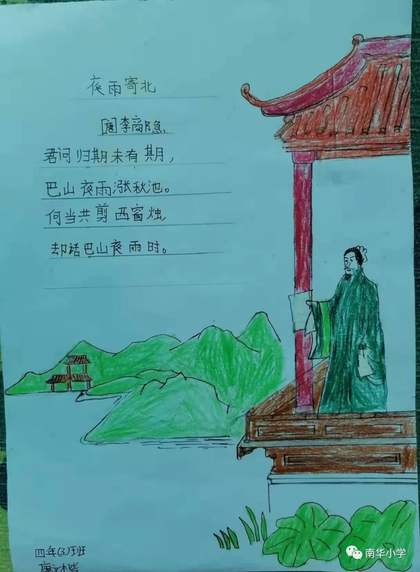 夜雨寄北
[唐]李商隐
君问归期未有期,
巴山夜雨涨秋池。
何当共剪西窗烛,
却话巴山夜雨时。
四年(3)班
南华小学